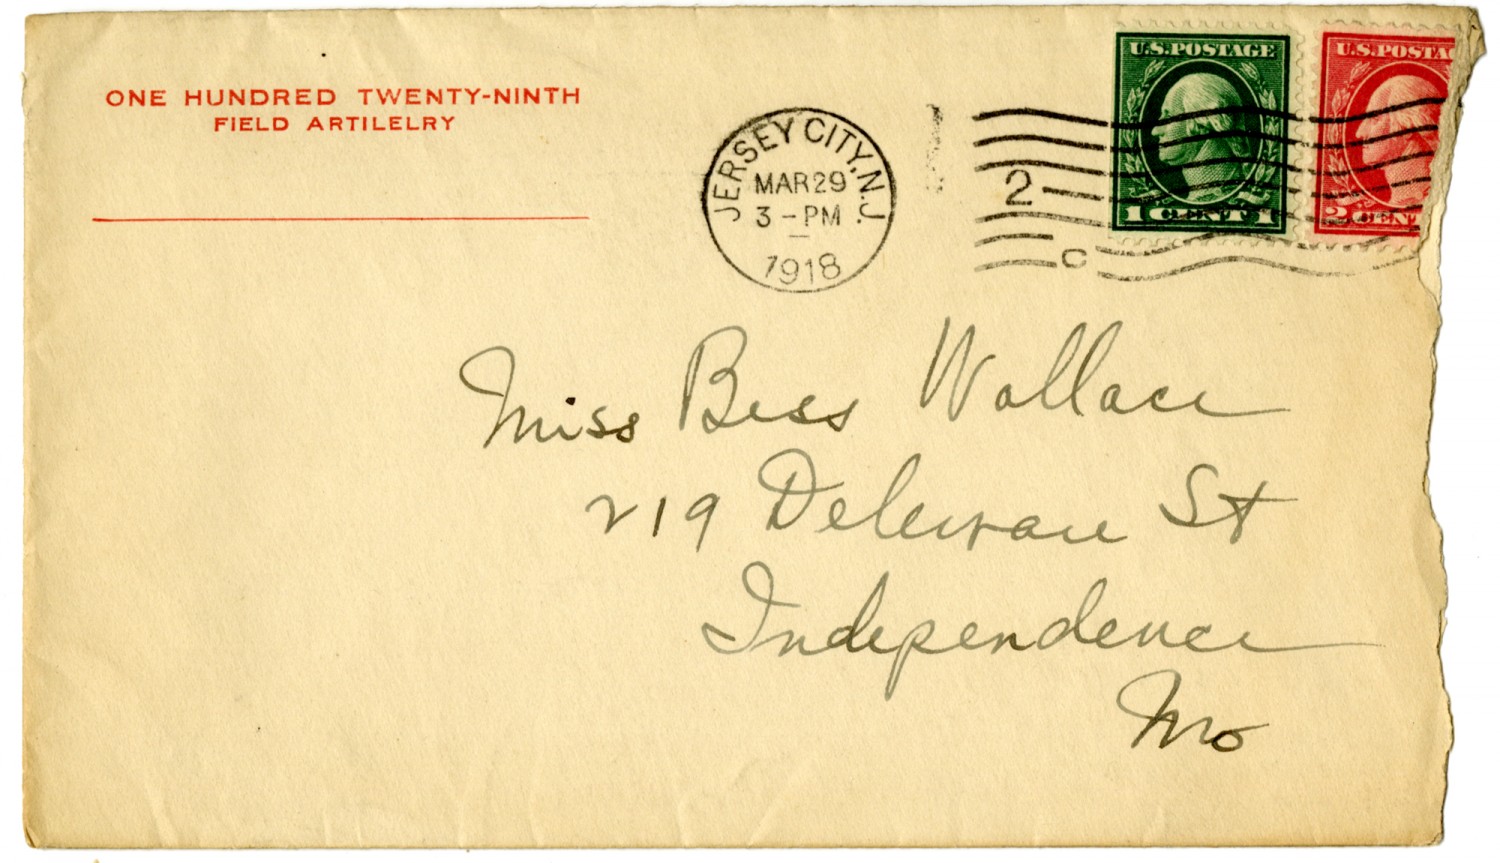 ONE HUNDRED TWENTY-NINTH
FIELD ARTILELRY
JERSEY CITY, N.J.
MAR 29
3 - PM
1918
2
C
U.S. POSTAGE
1 CENT 1
U.S. POSTAG
2 CENT
Miss Bess Wallace
219 Deleware St
Independence
Mo